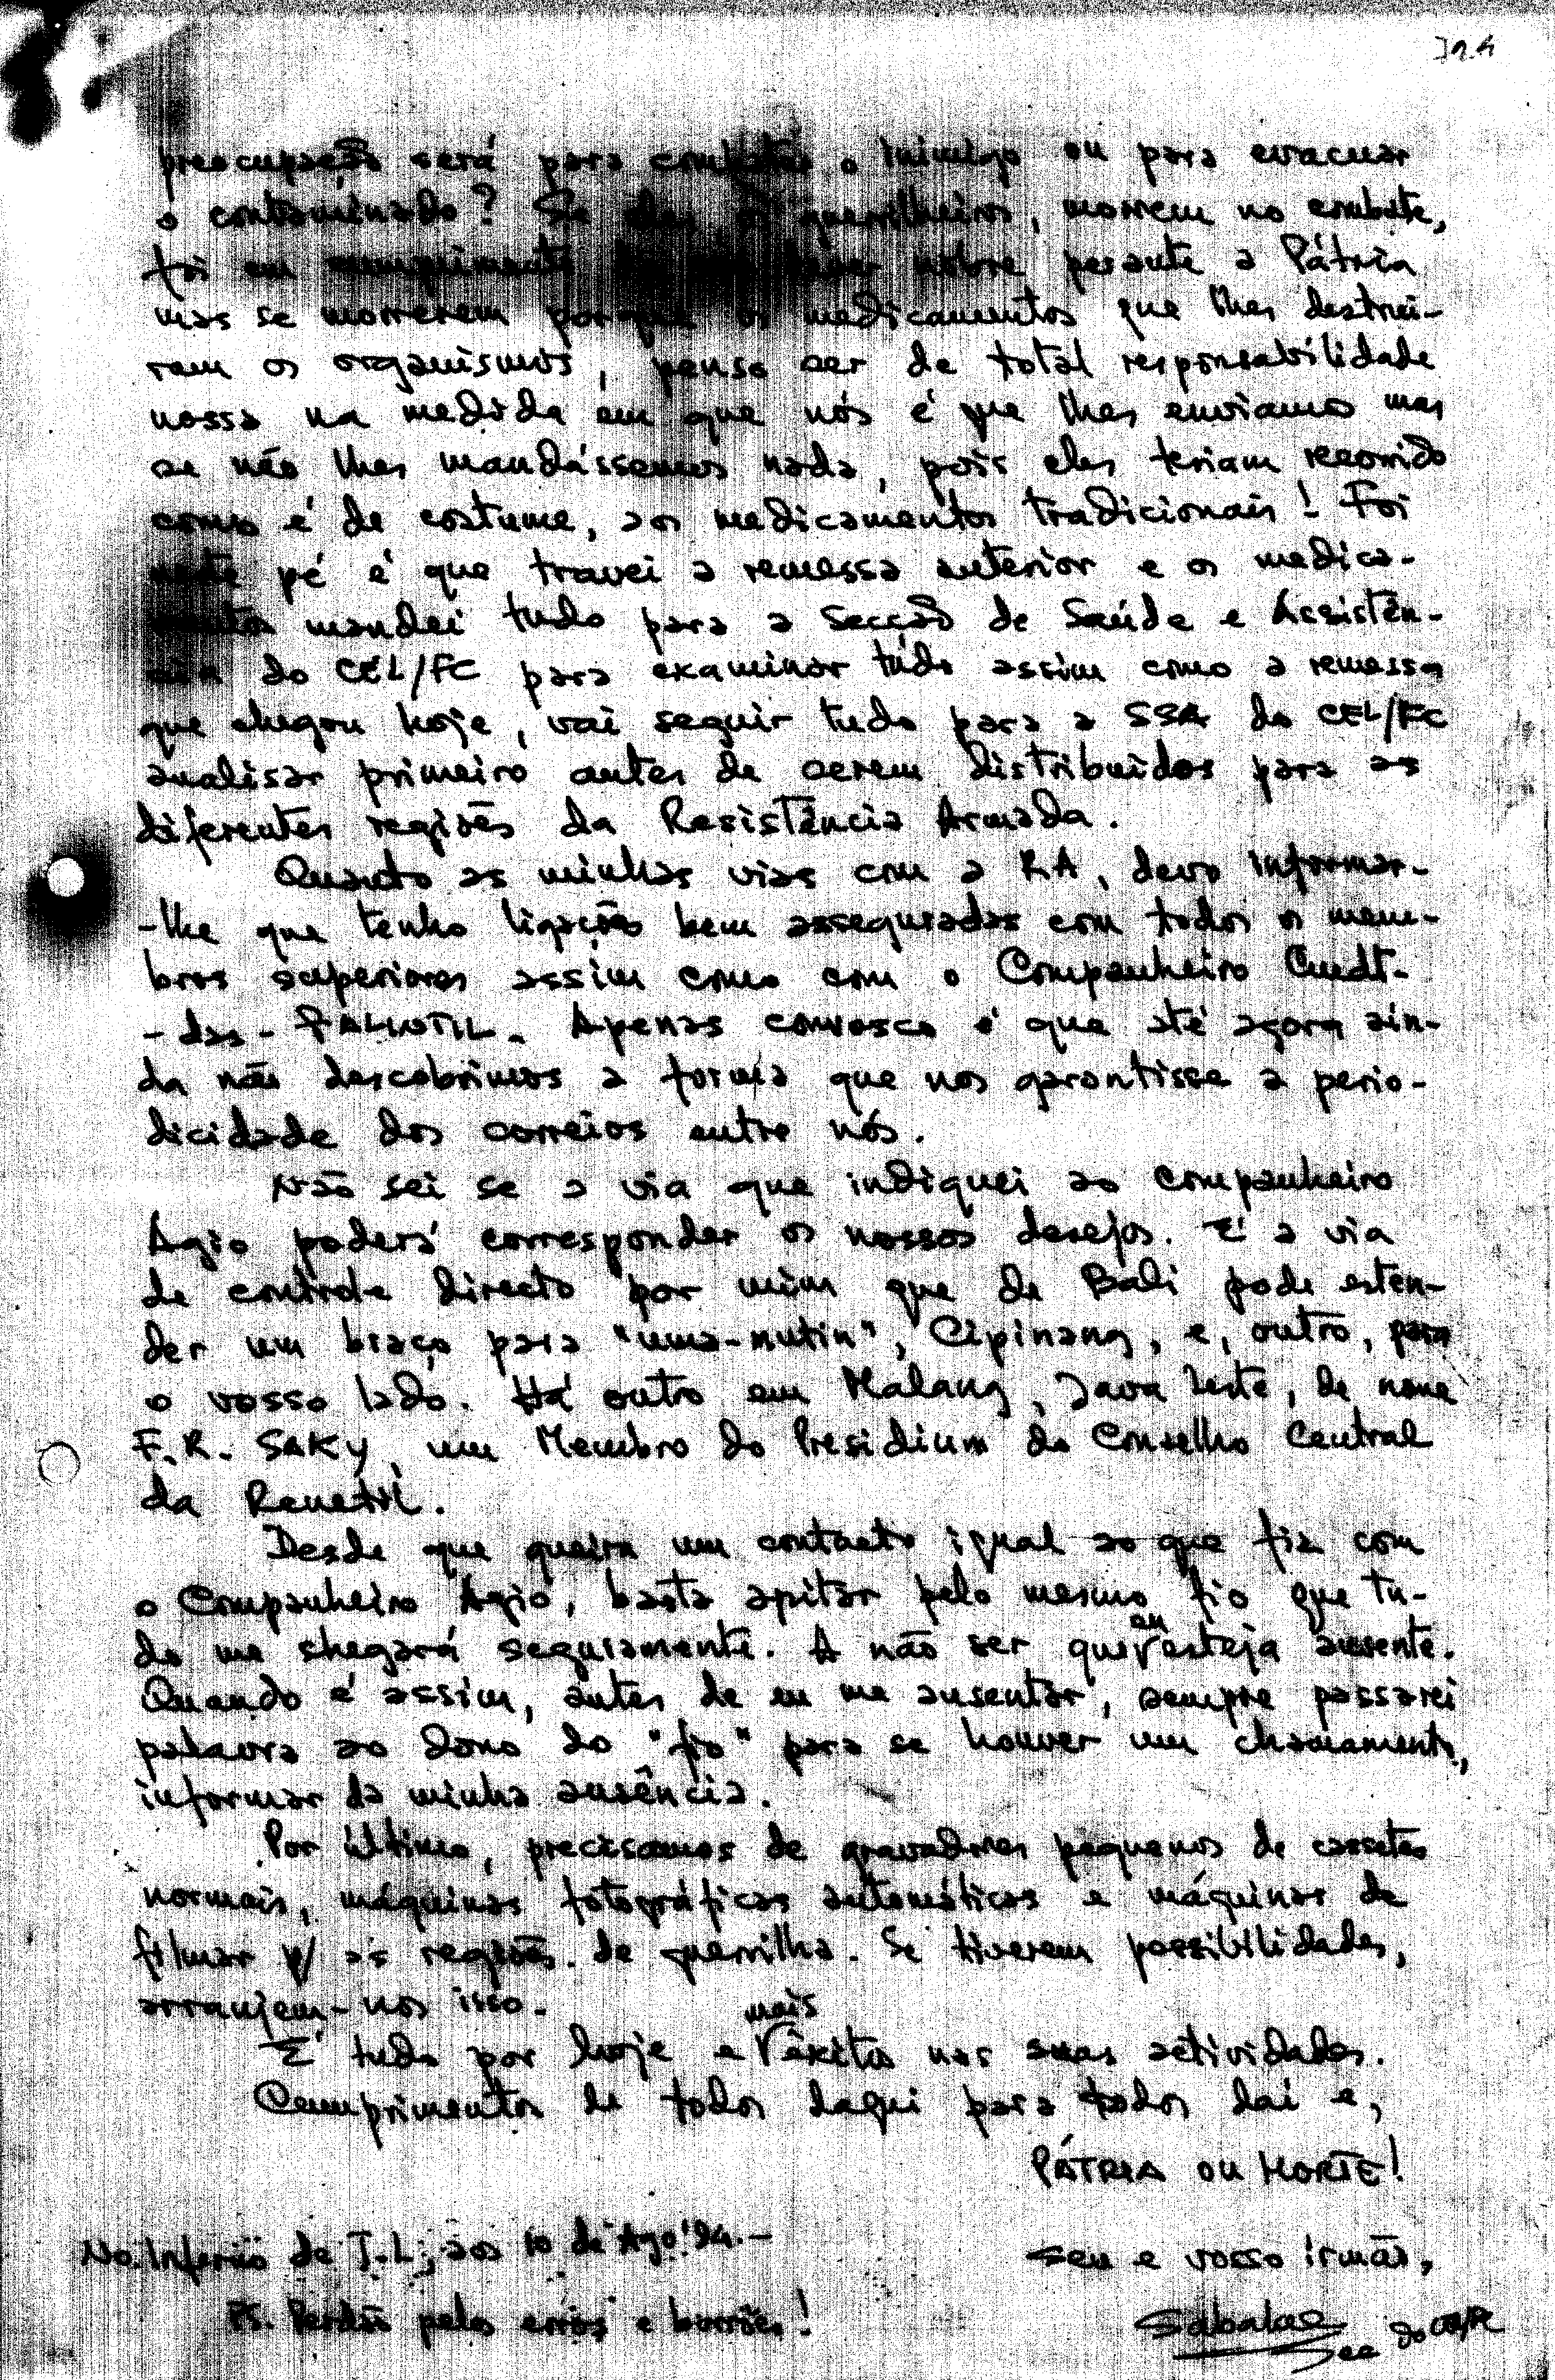 preocupação será para combater o inimigo ou para evacuar
o contaminado? Se eles, os guerrilheiros, morrem no combate,
foi em cumprimento dever nobre perante a Pátria
mas se morrerem porque os medicamentos que lhes destrui-
ram os organismos, penso ser de total responsabilidade
nossa na medida em que nós é que lhes enviamos mas
se não lhes mandássemos nada, pois eles teriam recorrido
como é de costume, aos medicamentos tradicionais! Foi
neste pé é que travei a remessa anterior e os medica-
mentos mandei tudo para a Secção de Saúde e Assistên-
cia do CEL/FC para examinar tudo assim como a remessa
que chegou hoje, vai seguir tudo para a SSA do CEL/FC
analisar primeiro antes de serem distribuídos para as
diferentes regiões da Resistência Armada.
Quanto as minhas vias com a RA, devo informar-
-lhe que tenho ligações bem asseguradas com todos os mem-
bros superiores assim como com o Companheiro Cmdt-
-das-FALINTIL. Apenas convosco é que até agora ain-
da não descobrimos a forma que nos garantisse a perio-
dicidade dos correios entre nós.
Não sei se a via que indiquei ao companheiro
Ágio poderá corresponder os nossos desejos. É a via
de controle directo por mim que de Bali pode esten-
der um braço para "uma-mutin", Cipinang, e, outro, para
o vosso lado. Há outro em Malang, Java Leste, de nome
F.R. SAKY, um Membro do Presidium do Conselho Central
da Renetil.
Desde que queira um contacto igual ao que fiz com
o Companheiro Ágio, basta apitar pelo mesmo fio que tu-
do me chegará seguramente. A não ser que eu esteja ausente.
Quando é assim, antes de eu me ausentar, sempre passarei
palavra ao dono do "fio" para se houver um chamamento,
informar da minha ausência.
Por último, precisamos de gravadores pequenos de cassetes
normais, máquinas fotográficas automáticas e máquinas de
filmar p/ as regiões de guerrilha. Se tiverem possibilidades,
arranjem-nos isso.
É tudo por hoje e mais êxitos nas suas actividades.
Cumprimentos de todos daqui para todos daí e,
PÁTRIA OU MORTE!
No Inferno de T.L., aos 10 de Ago'94.-
Seu e vosso irmão,
PS. Perdão pelos erros e borrões!
Sabalae
Sec do CEL/FC